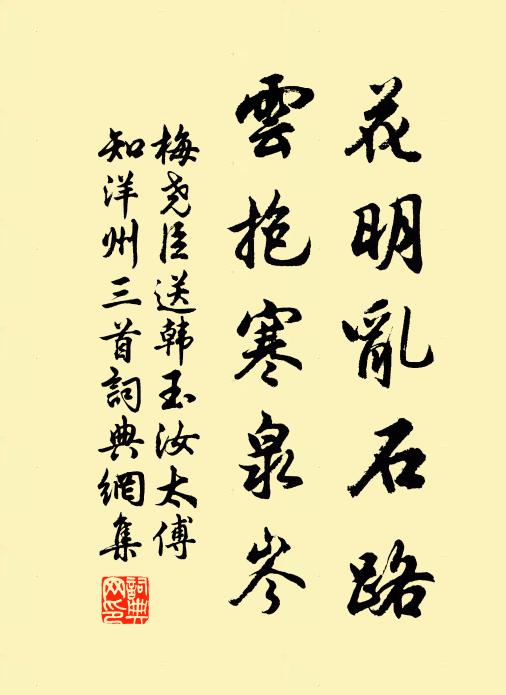 花明亂石路
雲抱寒泉岑
梅尧臣送韩玉汝太傅
知洋州三首詞典網集
詞典网印